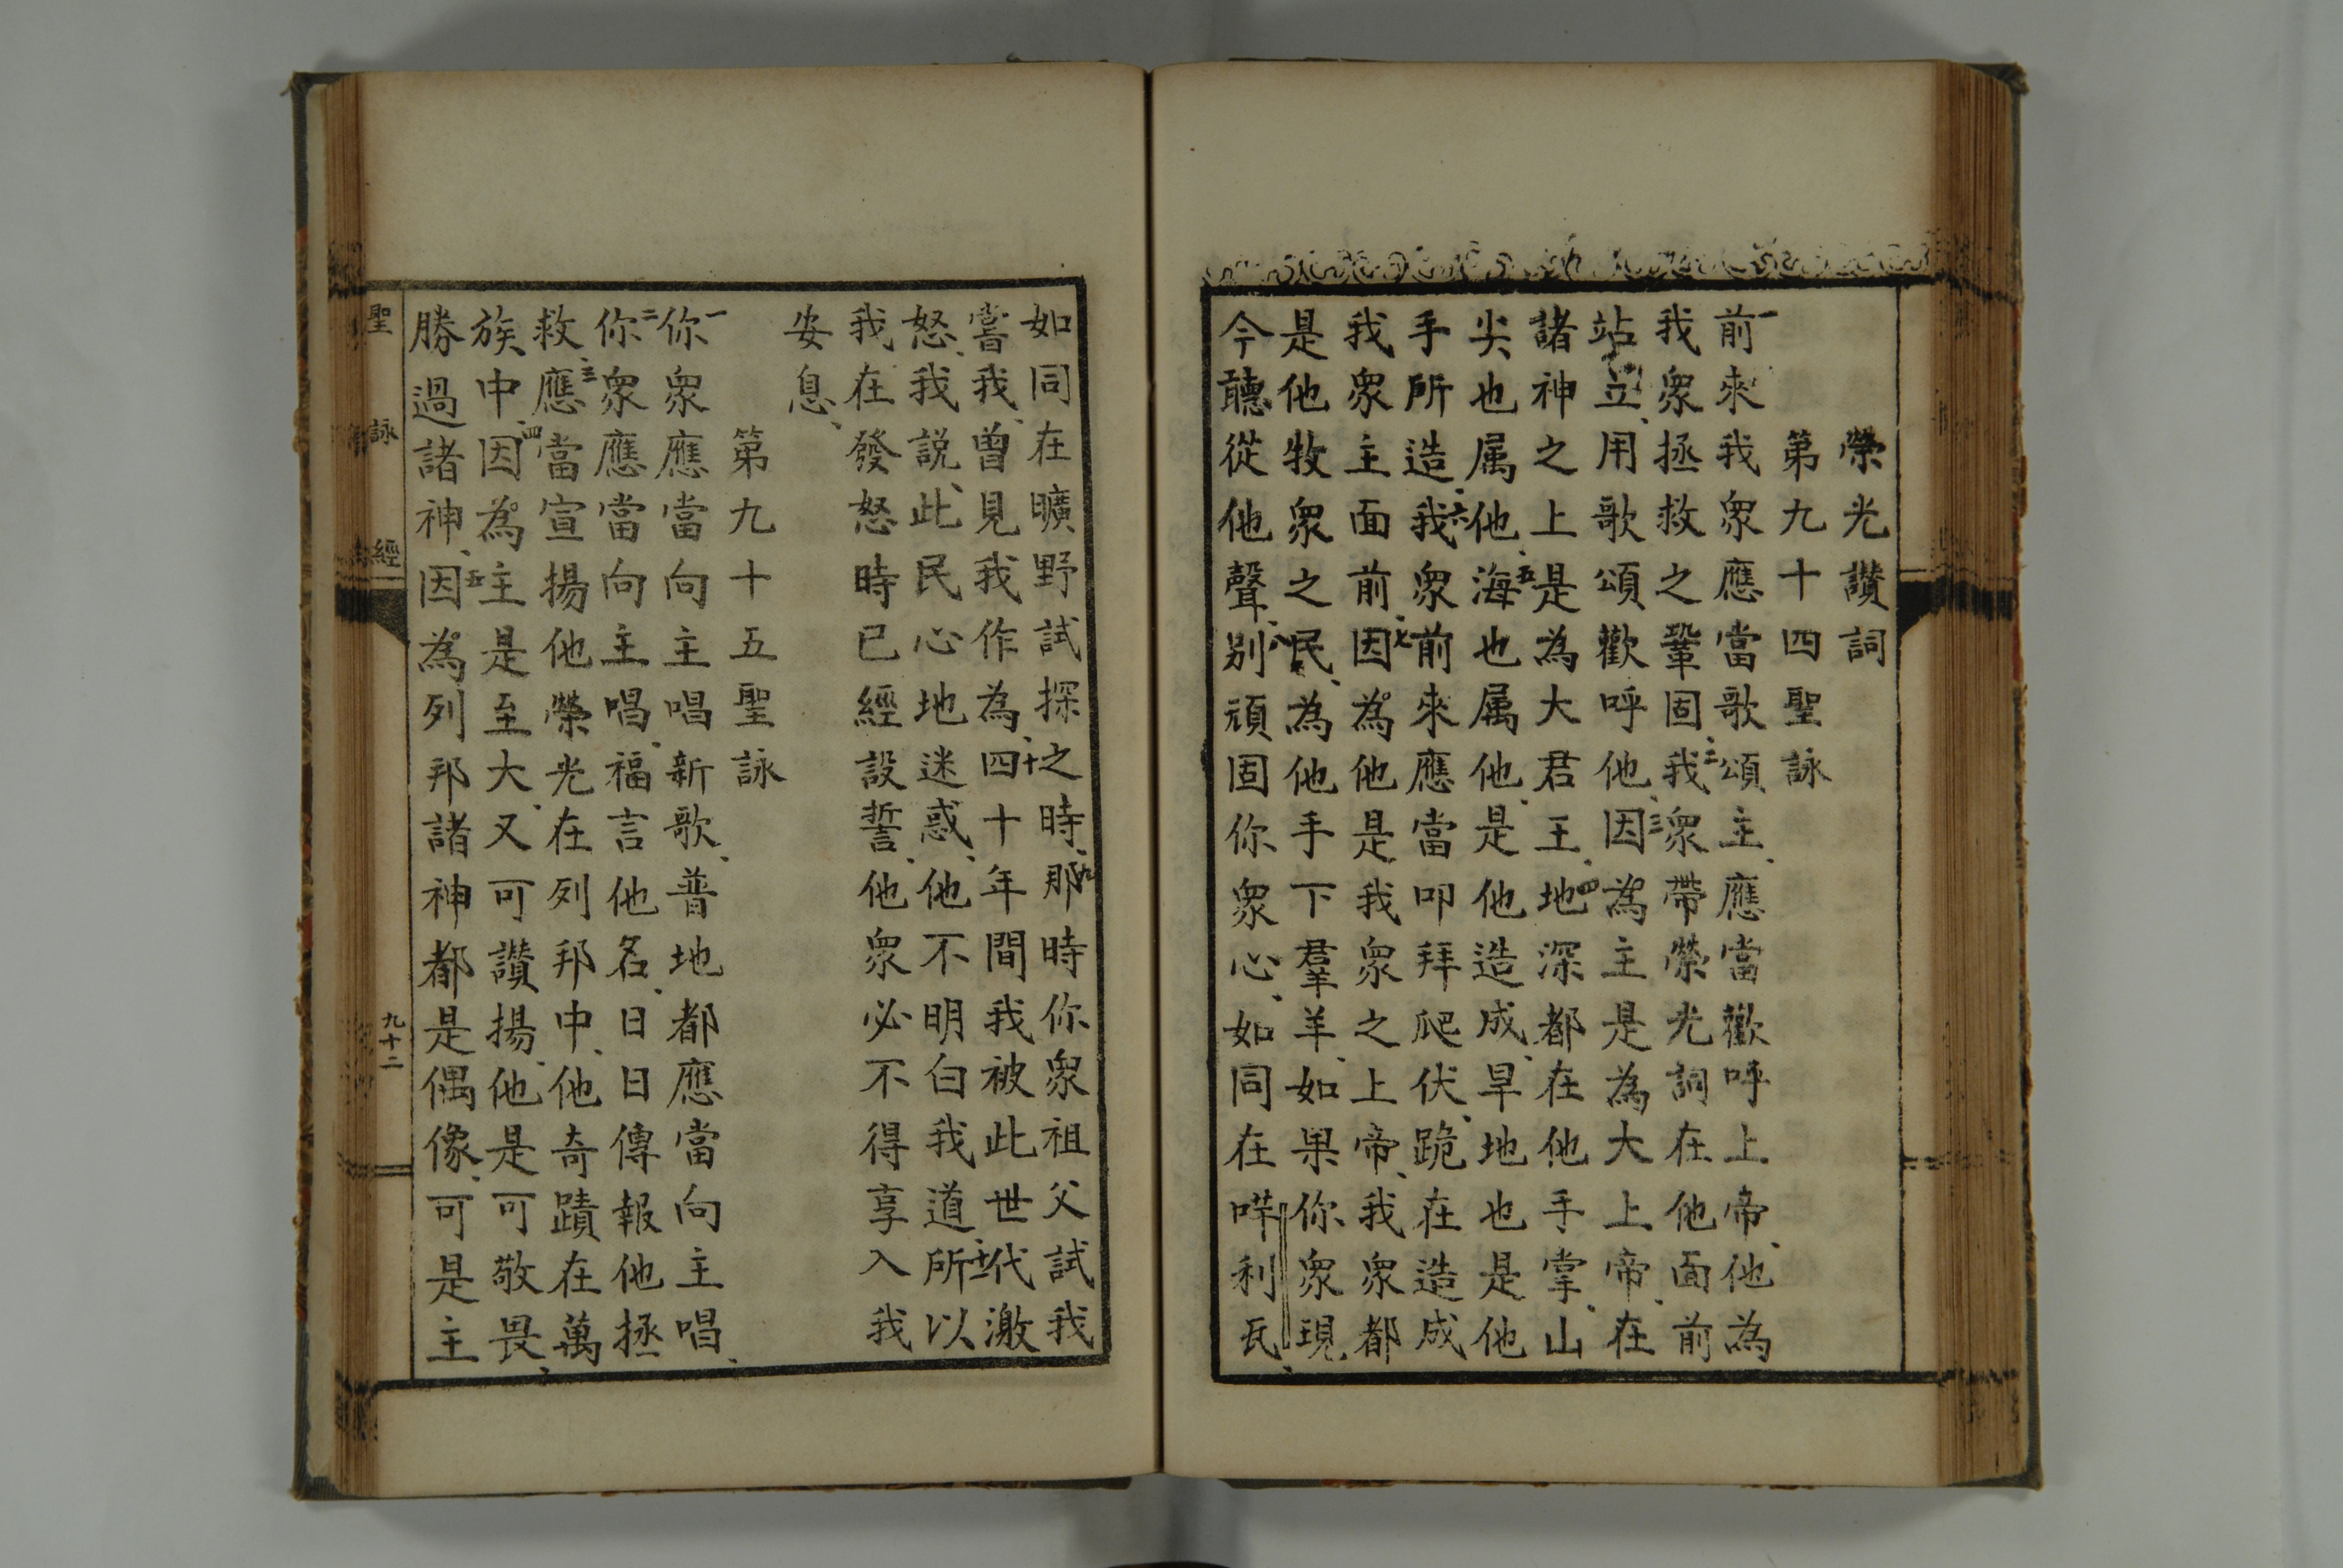 榮光讚詞
第九十四聖詠
一前來我衆應當歌頌主、應當歡呼上帝、他為
我衆拯救之鞏固、二我衆帶榮光詞在他面前
站立、用歌頌歡呼他、三因為主是為大上帝、在
諸神之上是為大君王、四地深都在他手掌、山
尖也属他、五海也属他、是他造成、旱地也是他
手所造、六我衆前來應當叩拜爬伏、跪在造成
我衆主面前、七因為他是我衆之上帝、我衆都
是他牧衆之民、為他手下羣羊、如果你衆現
今聽從他聲、八别頑固你衆心、如同在哶利瓦、
如同在曠野試探之時、九那時你衆祖父試我
嘗我、曾見我作為、十四十年間我被此世代激
怒、我説、此民心地迷惑、他不明白我道、十一所以
我在發怒時已經設誓、他衆必不得享入我
安息、
第九十五聖詠
一你衆應當向主唱新歌、普地都應當向主唱、
二你衆應當向主唱、福言他名、日日傳報他拯
救、三應當宣揚他榮光在列邦中、他奇蹟在萬
族中、四因為主是至大、又可讚揚、他是可敬畏、
勝過諸神、五因為列邦諸神都是偶像、可是主
聖詠經
九十二